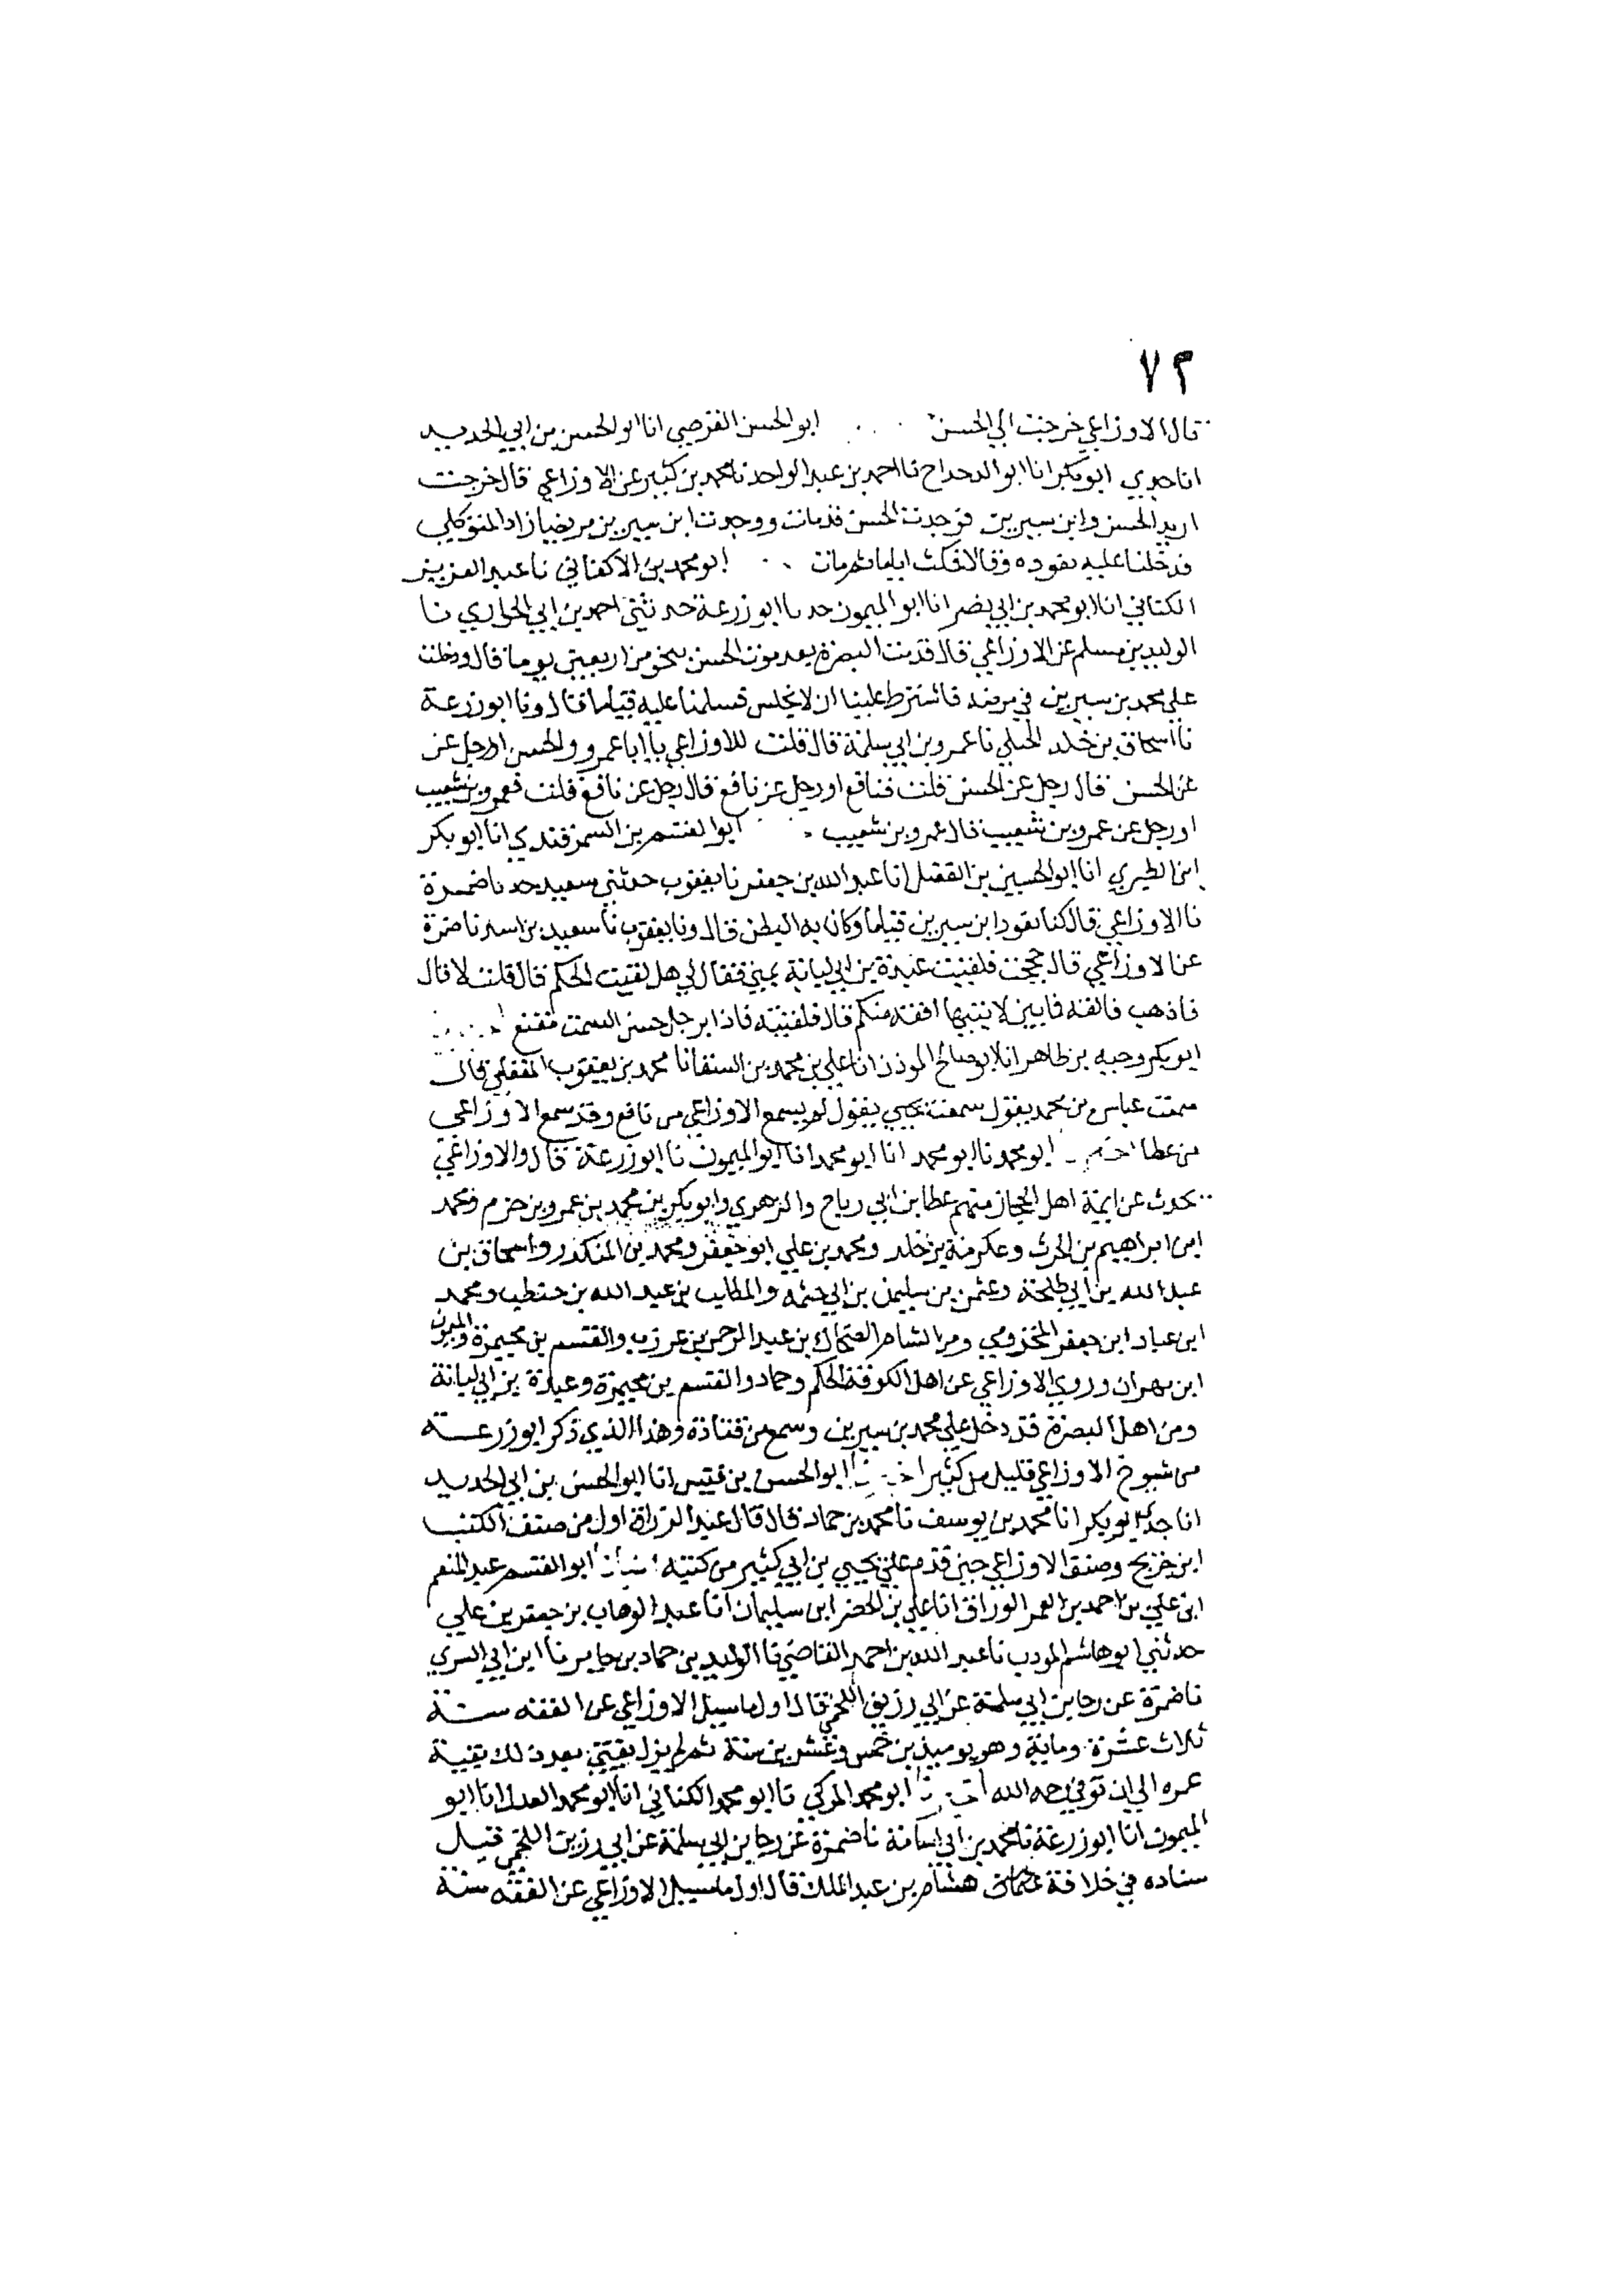 ٧٣
قال الاوزاعي خرجت الي الحسن ابو الحسن الفرضي انا ابو الحسن بن ابي الحديد
انا جدي ابو بكر انا ابو الدحداح نا احمد بن عبد الواحد نا محمد بن كثير عن الاوزاعي قال خرجت
اريد الحسن وابن سيرين فوجدت الحسن قد مات ووجدت ابن سيرين مريضا زاد المتوكلي
فدخلنا عليه نعوده وقالا فمكث اياما ثم مات ابو محمد بن الاكفاني نا عبد العزيز
الكتاني انا ابو محمد بن ابي نصر انا ابو الميمون حدنا ابو زرعة حدثني احمد بن ابي الحواري نا
الوليد بن مسلم عن الاوزاعي قال قدمت البصرة بعد موت الحسن بنحو من اربعين يوما قال ودخلت
علي محمد بن سيرين في مرضه فاشترط علينا ان لا نجلس فسلمنا عليه قياما قال ونا ابو زرعة
نا اسحاق بن خلد الختلي نا عمرو بن ابي سلمة قال قلت للاوزاعي يا ابا عمرو والحسن او رجل عن
عن الحسن قال رجل عن الحسن قلت فنافع او رجل عن نافع قال رجل عن نافع قلت فعمرو بن شعيب
او رجل عن عمرو بن شعيب قال عمرو بن شعيب ابو القسم بن السمرقندي انا ابو بكر
ابن الطبري انا ابو الحسين بن الفضل انا عبد الله بن جعفر نا يعقوب حدثني سعيد حدنا ضمرة
نا الاوزاعي قال كنا نعود ابن سيرين قياما وكان به البطن قال ونا يعقوب نا سعيد بن اسد نا ضمرة
عن الاوزاعي قال حججت فلقيت عبدة بن ابي لبابة بمني فقال لي هل لقيت الحكم قال قلت لا قال
فاذهب فالقه فما بين لابتيها افقه منكم قال فلقيته فاذا برجل حسن السمت مقنع
ابو بكر وجيه بن طاهر انا ابو صالح الموذن انا علي بن محمد بن السقا نا محمد بن يعقوب المعقلي قال
سمعت عباس بن محمد يقول سمعت يحيي يقول لم يسمع الاوزاعي من نافع وقد سمع الاوزاعي
من عطا ابو محمد نا ابو محمد انا ابو محمد انا ابو الميمون نا ابو زرعة قال والاوزاعي
يحدث عن ايمة اهل الحجاز منهم عطا بن ابي رباح والزهري وابو بكر بن محمد بن عمرو بن حزم ومحمد
ابن ابراهيم بن الحرث وعكرمة بن خلد ومحمد بن علي ابو جعفر ومحمد بن المنكدر واسحاق بن
عبد الله بن ابي طلحة وعثمن بن سليمن بن ابي حثمه والمطلب بن عبد الله بن حنطب ومحمد
ابن عباد ابن جعفر المخزومي ومن الشام الضحاك بن عبد الرحمن بن عرزب والقسم بن مخيمرة وميمون
ابن مهران وروي الاوزاعي عن اهل الكوفة الحكم وحماد والقسم بن مخيمرة وعبدة بن ابي لبابة
ومن اهل البصرة قد دخل علي محمد بن سيرين وسمع من قتادة وهذا الذي ذكر ابو زرعة
من شيوخ الاوزاعي قليل من كثير ابو الحسن بن قبيس انا ابو الحسن بن ابي الحديد
انا جدي ابو بكر انا محمد بن يوسف نا محمد بن حماد قال قال عبد الرزاق اول من صنف الكتب
ابن جريج وصنف الاوزاعي حين قدم علي يحيي بن ابي كثير من كتبه انبانا ابو القسم عبد المنعم
ابن علي بن احمد بن العمر الوراق انا علي بن الخضر ابن سليمان انا عبد الوهاب بن جعفر بن علي
حدثني ابو هاشم المودب نا عبد الله بن احمد القاضي نا الوليد بن حماد بن جابر نا ابن ابي السري
نا ضمرة عن رجا بن ابي سلمة عن ابي رزيق اللخمي قال اول ما سيل الاوزاعي عن الفقه سنة
ثلاث عشرة وماية وهو يوميذ بن خمس وعشرين سنة ثم لم يزل يفتي بعد ذلك بقية
عمره الي ان توفي رحمه الله ابو محمد المزكي نا ابو محمد الكتاني انا ابو محمد العدل انا ابو
الميمون انا ابو زرعة نا محمد بن ابي اسامة نا ضمرة عن رجا بن ابي سلمة عن ابي رزين اللخمي قبل
سناده في خلافة هشام بن عبد الملك قال اول ما سيل الاوزاعي عن الفقه سنة